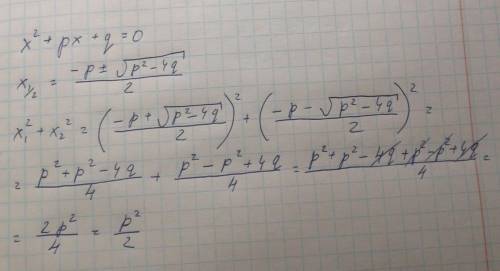 x² + px + q = 0
x₁/₂ = (-p ± √(p² - 4q)) / 2
x₁² + x₂² = ((-p + √(p² - 4q)) / 2)² + ((-p - √(p² - 4q)) / 2)² =
= (p² + p² - 4q) / 4 + (p² - p² + 4q) / 4 = (p² + p² - 4q + p² - p² + 4q) / 4 =
= 2p² / 4 = p² / 2